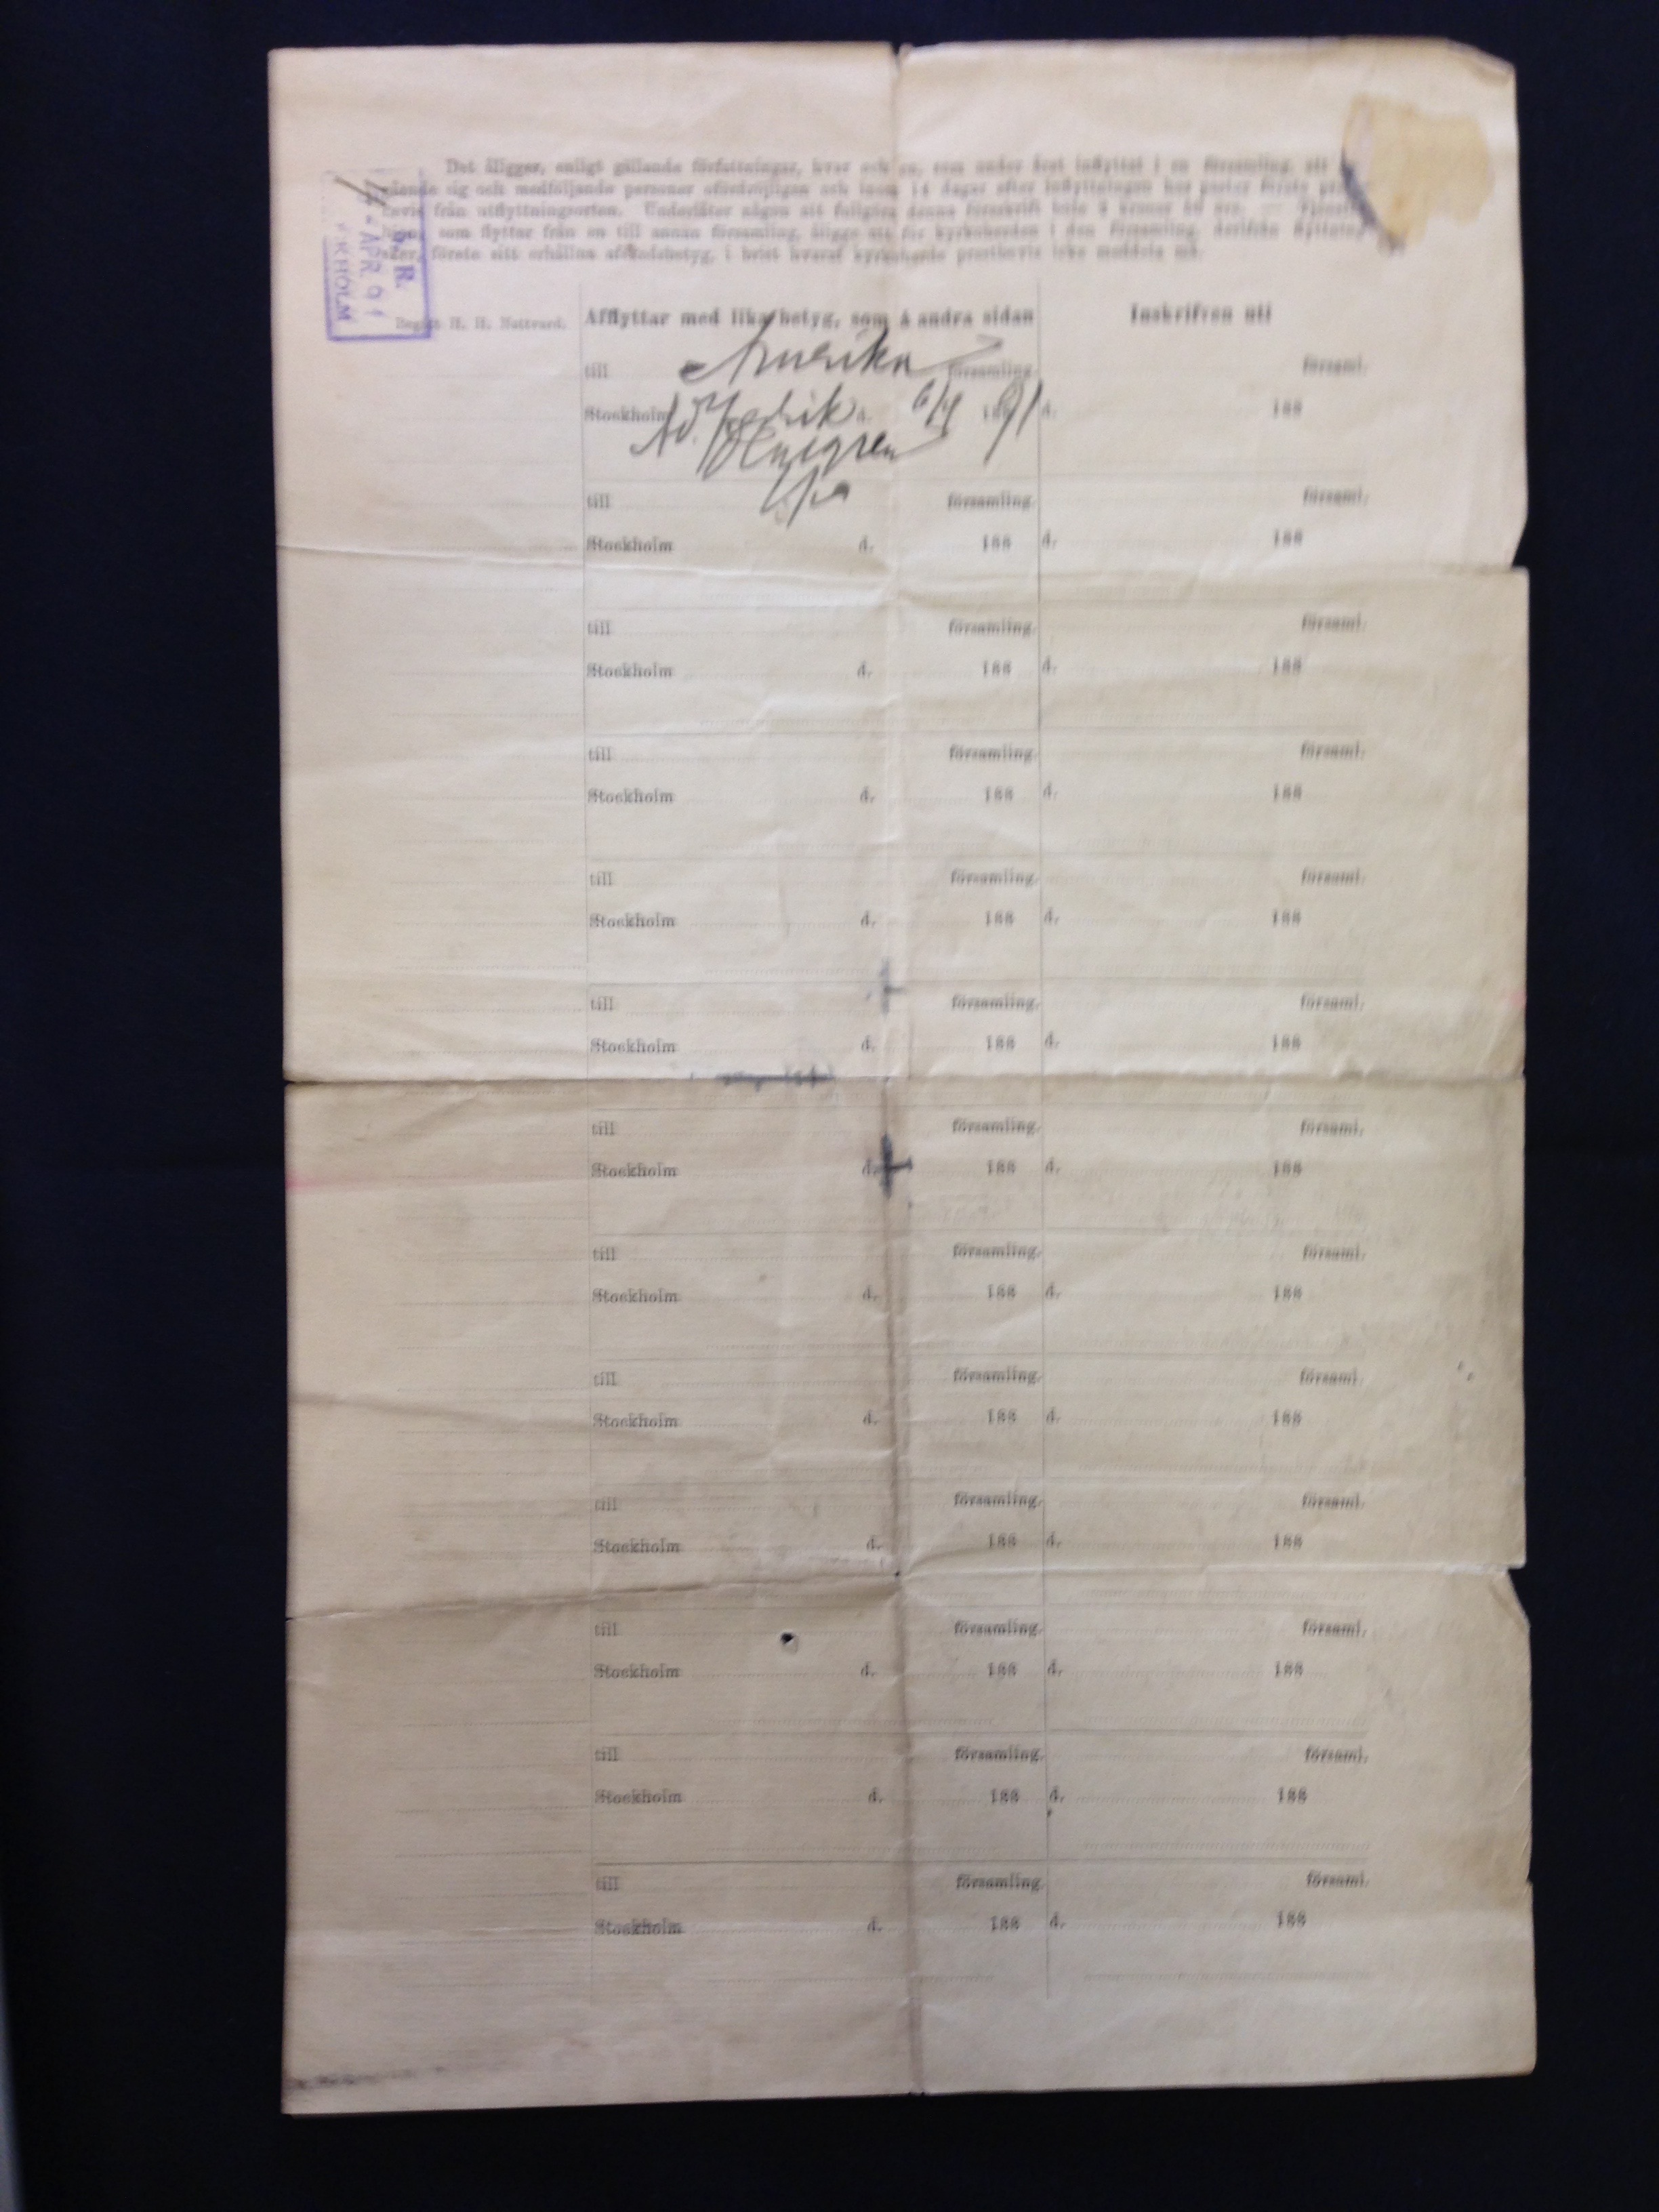 Det åligger, enligt gällande författningar, hvar och en, som under året inflyttat i en församling, att
sig och medföljande personer ofördröjligen och inom 14 dagar efter inflyttningen hos pastor förete
från utflyttningsorten. Underlåter någon att fullgöra denna föreskrift böte
som flyttar från en till annan församling, åligge att för kyrkoherden i den församling, derifrån flyttning
förete sitt erhållna afskedsbetyg, i brist hvaraf kyrkoherde prestbevis icke meddela må.
R.
APR. 91
H. H. Nattvard.
Afflyttar med lika betyg, som å andra sidan
Inskrifven uti
till Amerika församling.
församl.
Stockholm Ad. Fredrik d. 6/4 188 91
d. 188
till församling.
församl.
Stockholm d. 188
d. 188
till församling.
församl.
Stockholm d. 188
d. 188
till församling.
församl.
Stockholm d. 188
d. 188
till församling.
församl.
Stockholm d. 188
d. 188
till församling.
församl.
Stockholm d. 188
d. 188
till församling.
församl.
Stockholm d. 188
d. 188
till församling.
församl.
Stockholm d. 188
d. 188
till församling.
församl.
Stockholm d. 188
d. 188
till församling.
församl.
Stockholm d. 188
d. 188
till församling.
församl.
Stockholm d. 188
d. 188
till församling.
församl.
Stockholm d. 188
d. 188
till församling.
församl.
Stockholm d. 188
d. 188